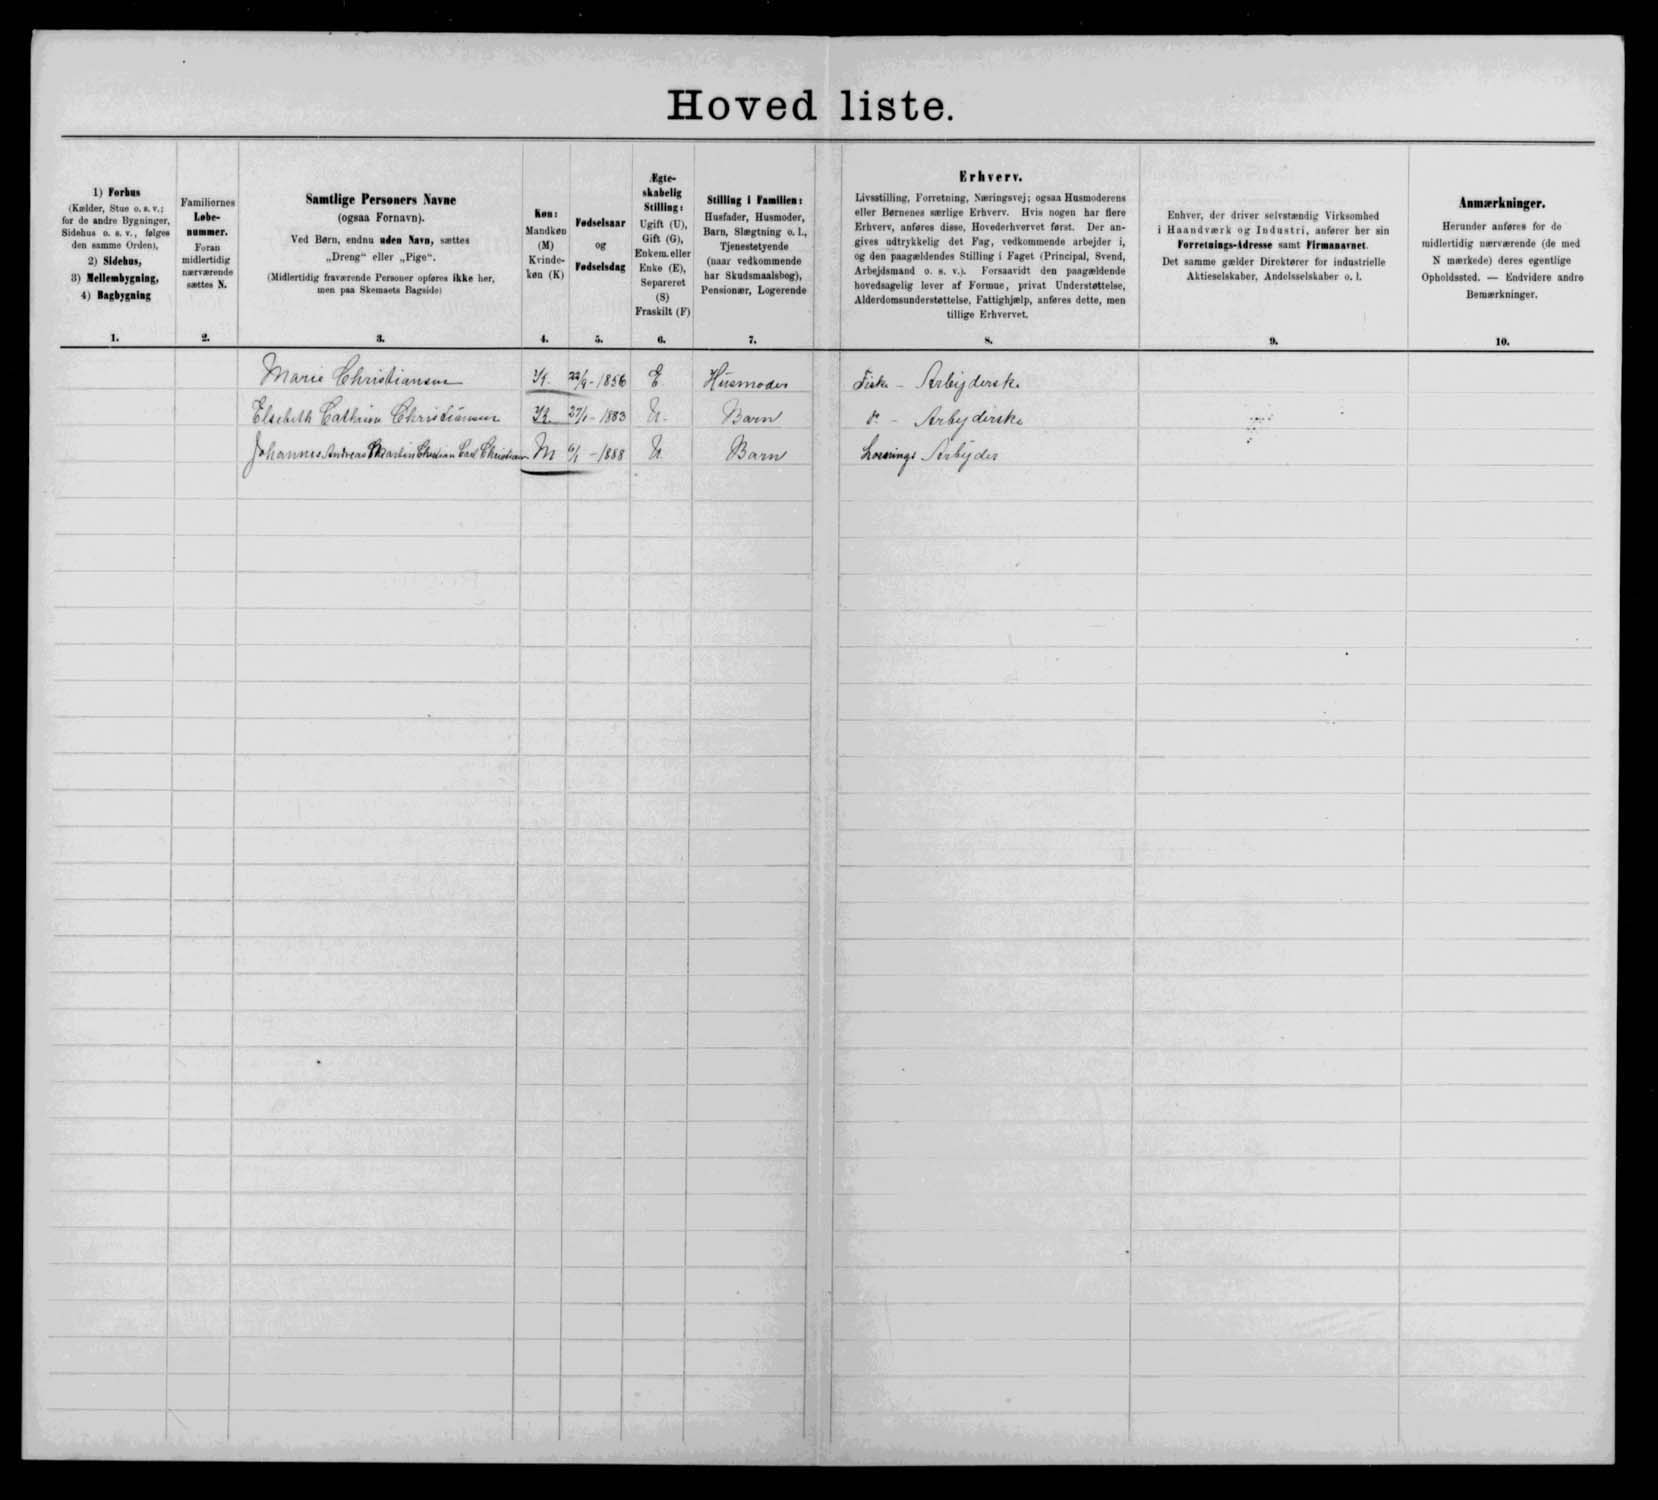 Hoved liste.
1) Forhus
(Kælder, Stue o. s. v.;
for de andre Bygninger,
Sidehus o. s. v., følges
den samme Orden),
2) Sidehus,
3) Mellembygning,
4) Bagbygning
1.
Familiernes
Løbe-
nummer.
Foran
midlertidig
nærværende
sættes N.
2.
Samtlige Personers Navne
(ogsaa Fornavn).
Ved Børn, endnu uden Navn, sættes
„Dreng“ eller „Pige“.
(Midlertidig fraværende Personer opføres ikke her,
men paa Skemaets Bagside)
3.
Køn:
Mandkøn
(M)
Kvinde-
køn (K)
4.
Fødselsaar
og
Fødselsdag
5.
Ægte-
skabelig
Stilling:
Ugift (U),
Gift (G),
Enkem. eller
Enke (E),
Separeret
(S)
Fraskilt (F)
6.
Stilling i Familien:
Husfader, Husmoder,
Barn, Slægtning o. l.,
Tjenestetyende
(naar vedkommende
har Skudsmaalsbog),
Pensionær, Logerende
7.
Erhverv.
Livsstilling, Forretning, Næringsvej; ogsaa Husmoderens
eller Børnenes særlige Erhverv. Hvis nogen har flere
Erhverv, anføres disse, Hovederhvervet først. Der an-
gives udtrykkelig det Fag, vedkommende arbejder i,
og den paagældendes Stilling i Faget (Principal, Svend,
Arbejdsmand o. s. v.). Forsaavidt den paagældende
hovedsagelig lever af Formue, privat Understøttelse,
Alderdomsunderstøttelse, Fattighjælp, anføres dette, men
tillige Erhvervet.
8.
Enhver, der driver selvstændig Virksomhed
i Haandværk og Industri, anfører her sin
Forretnings-Adresse samt Firmanavnet.
Det samme gælder Direktører for industrielle
Aktieselskaber, Andelsselskaber o. l.
9.
Anmærkninger.
Herunder anføres for de
midlertidig nærværende (de med
N mærkede) deres egentlige
Opholdssted. — Endvidere andre
Bemærkninger.
10.
Marie Christiansen K. 22/9-1856 E Husmoder Fiske - Arbejderske
Elsebeth Cathrine Christiansen K 27/1-1883 U. Barn do - Arbejderske
Johannes Andreas Martin Carl M 6/1-1888 U. Barn Arbejder